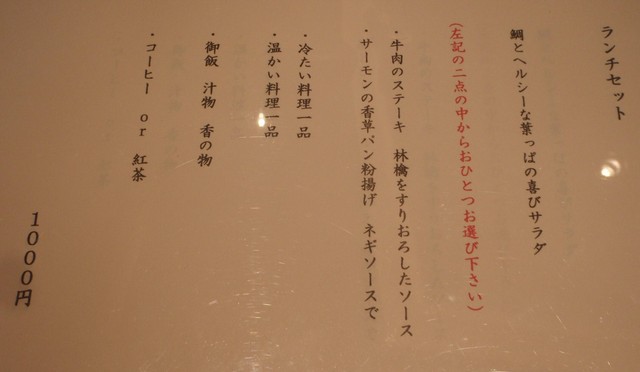 ランチセット
鯛とヘルシーな葉っぱの喜びサラダ
(左記の二点の中からおひとつお選び下さい)
・牛肉のステーキ 林檎をすりおろしたソース
・サーモンの香草パン粉揚げ ネギソースで
・冷たい料理一品
・温かい料理一品
・御飯 汁物 香の物
・コーヒー or 紅茶
1000円